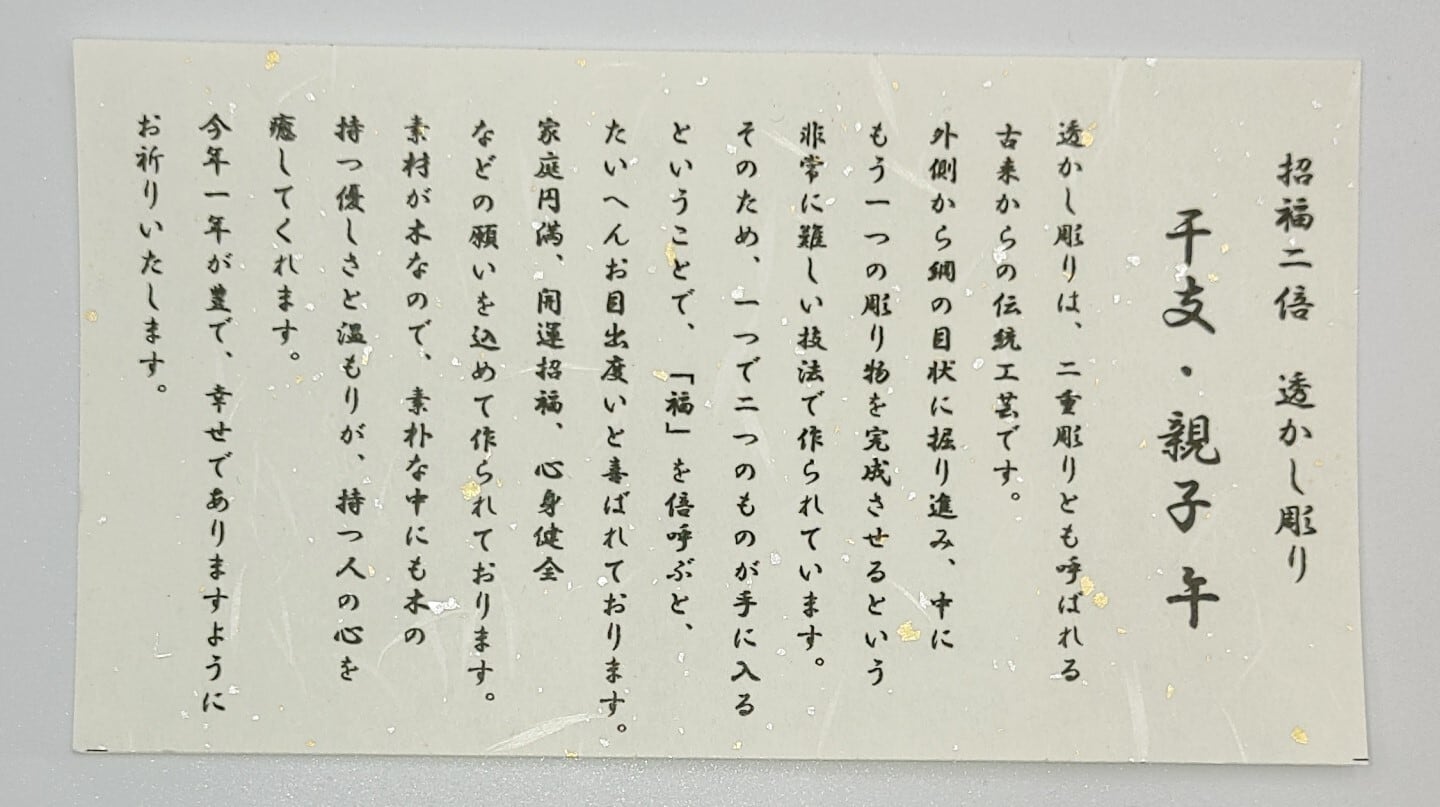 招福二倍　透かし彫り
干支・親子 午
透かし彫りは、二重彫りとも呼ばれる
古来からの伝統工芸です。
外側から網の目状に掘り進み、中に
もう一つの彫り物を完成させるという
非常に難しい技法で作られています。
そのため、一つで二つのものが手に入る
ということで、「福」を倍呼ぶと、
たいへんお目出度いと喜ばれております。
家庭円満、開運招福、心身健全
などの願いを込めて作られております。
素材が木なので、素朴な中にも木の
持つ優しさと温もりが、持つ人の心を
癒してくれます。
今年一年が豊で、幸せでありますように
お祈りいたします。